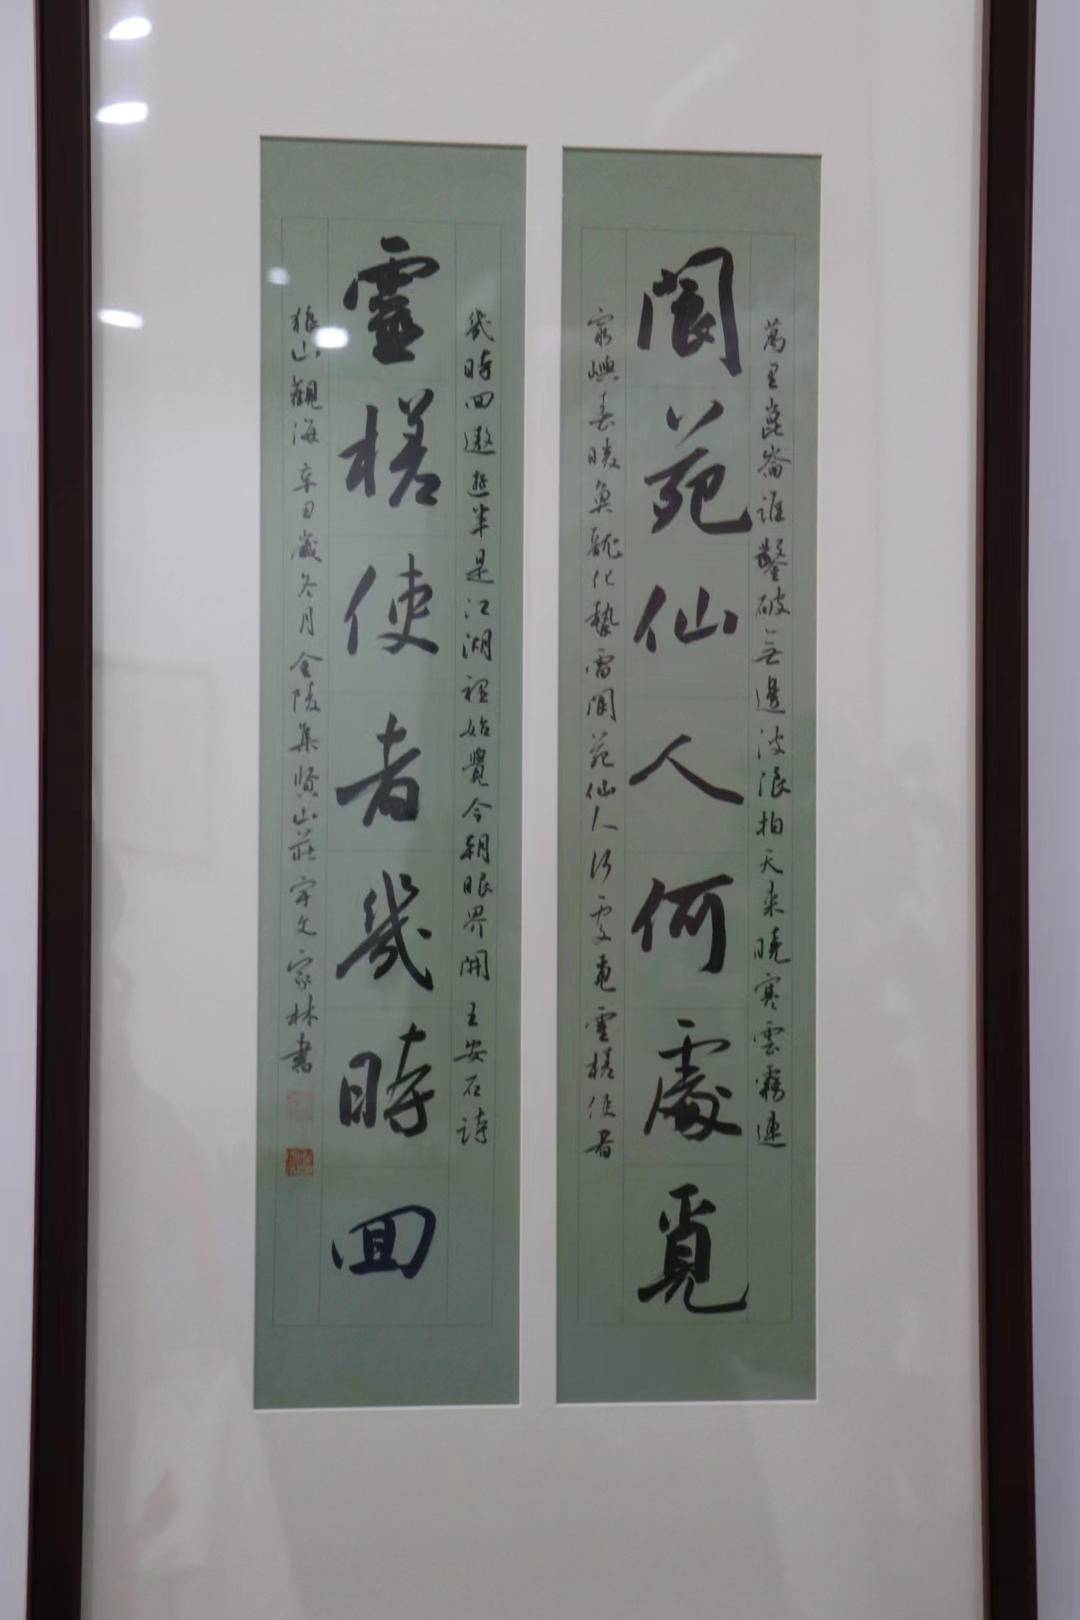 萬里崑崙誰鑿破無邊波浪拍天來曉寒雲霧連
閬苑仙人何處覓
窮嶼春暖魚龍化蟄雷閬苑仙人何處覓靈槎使者
幾時回遨遊半是江湖裡始覺今朝眼界開 王安石詩
靈槎使者幾時回
狼山觀海 辛丑歲冬月金陵集賢山莊宇文家林書